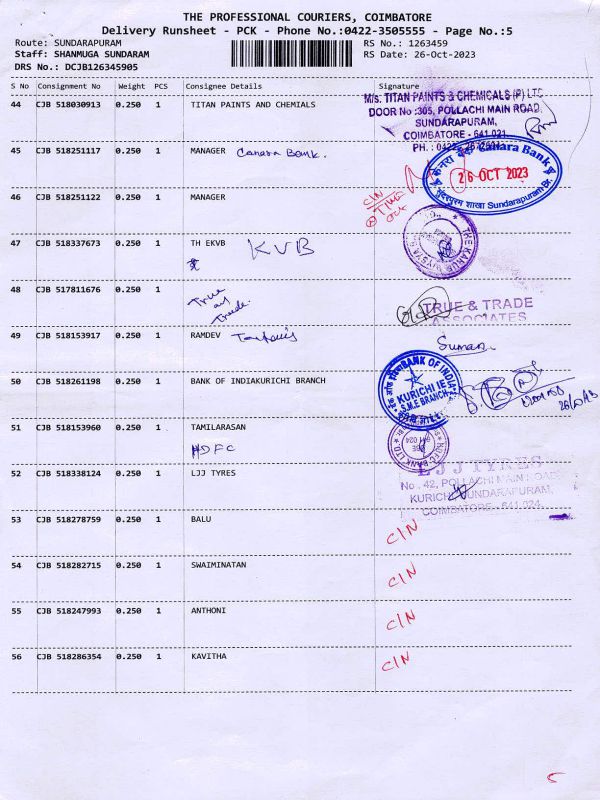 THE PROFESSIONAL COURIERS, COIMBATORE
Delivery Runsheet - PCK - Phone No.:0422-3505555 - Page No.:5
Route: SUNDARAPURAM RS No.: 1263459
Staff: SHANMUGA SUNDARAM RS Date: 26-Oct-2023
DRS No.: DCJB126345905
S No Consignment No Weight PCS Consignee Details Signature
44 CJB 518030913 0.250 1 TITAN PAINTS AND CHEMIALS
M/s. TITAN PAINTS & CHEMICALS (P) LTD
DOOR No :305, POLLACHI MAIN ROAD,
SUNDARAPURAM,
COIMBATORE - 641 021.
PH. : 0422
45 CJB 518251117 0.250 1 MANAGER Canara Bank.
केनरा बैंक Canara Bank
26 OCT 2023
सुंदरपुरम शाखा Sundarapuram Br.
46 CJB 518251122 0.250 1 MANAGER
C/N
47 CJB 518337673 0.250 1 TH EKVB KVB
48 CJB 517811676 0.250 1 True
Trade
TRUE & TRADE
ASSOCIATES
49 CJB 518153917 0.250 1 RAMDEV Suman
50 CJB 518261198 0.250 1 BANK OF INDIAKURICHI BRANCH
BANK OF INDIA
KURICHI IE
S.M.E BRANCH
51 CJB 518153960 0.250 1 TAMILARASAN
HDFC
HDFC BANK LTD.
641 024
52 CJB 518338124 0.250 1 LJJ TYRES
LJJ TYRES
No. 42, POLLACHI MAIN ROAD,
KURICHI, SUNDARAPURAM,
COIMBATORE - 641 024.
53 CJB 518278759 0.250 1 BALU C/N
54 CJB 518282715 0.250 1 SWAIMINATAN C/N
55 CJB 518247993 0.250 1 ANTHONI C/N
56 CJB 518286354 0.250 1 KAVITHA C/N